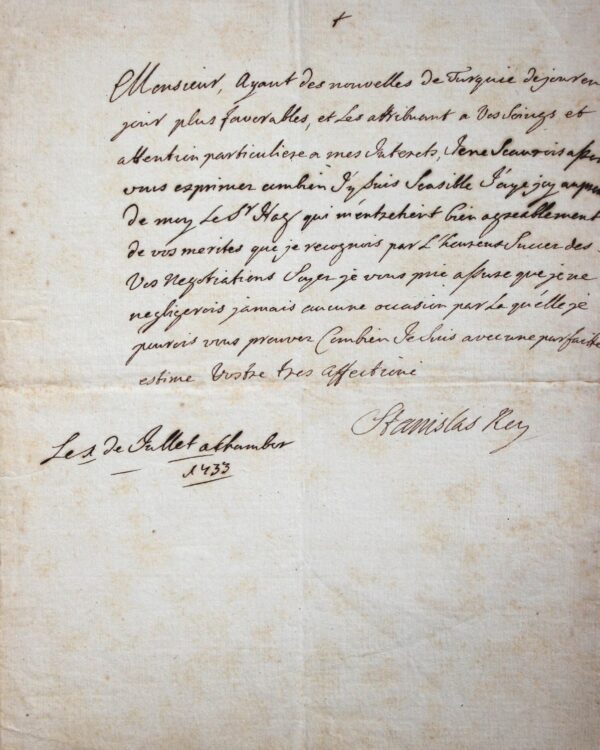 +
Monsieur, Ayant des nouvelles de Turquie de jour en
jour plus favorables, et Les attribuant a Vos Soings et
attention particuliere a mes Interets, Je ne Scaurois asses
vous exprimer combien J'y Suis Sensille J'ay icy aupres
de moy Le Sr Hag qui m'entretient bien agreablement
de vos merites que je recognois par L'heureux Succes des
Vos Negotiations Soyez je vous prie assure que je ne
negligerois jamais aucune occasion par La qu'elle je
pourois vous prouver Combien Je Suis avec une parfaite
estime Vostre tres affectioné
Stanislas Roy
Le 1 de Jullet a Chambor
1733